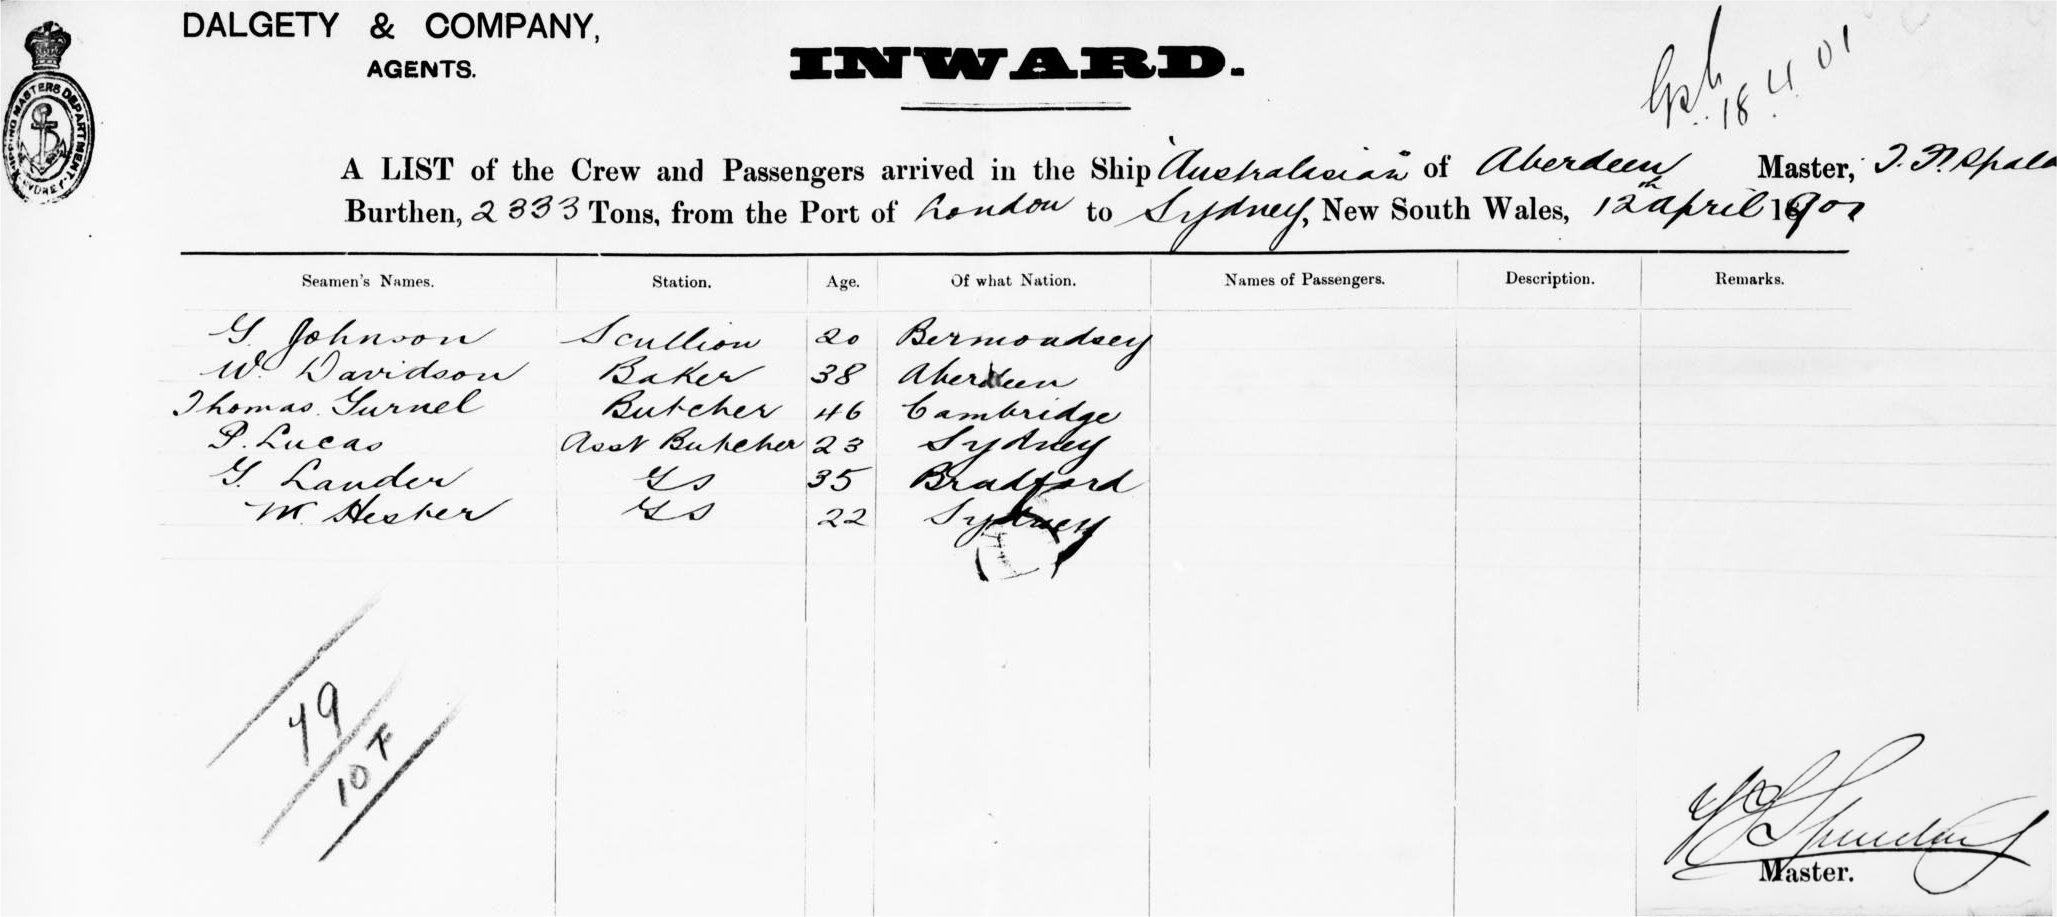 DALGETY & COMPANY,
AGENTS.
INWARD.
18.4.01
SHIPPING MASTERS DEPARTMENT. SYDNEY.
A LIST of the Crew and Passengers arrived in the Ship "Australasian" of Aberdeen Master,
Burthen, 2333 Tons, from the Port of London to Sydney, New South Wales, 12th April 1901
Seamen's Names. Station. Age. Of what Nation. Names of Passengers. Description. Remarks.
G. Johnson Scullion 20 Bermondsey
W. Davidson Baker 38 Aberdeen
Thomas Gurnel Butcher 46 Cambridge
P. Lucas Asst Butcher 23 Sydney
G. Lander GS 35 Bradford
W. Hester GS 22 Sydney
79
10 F
Master.